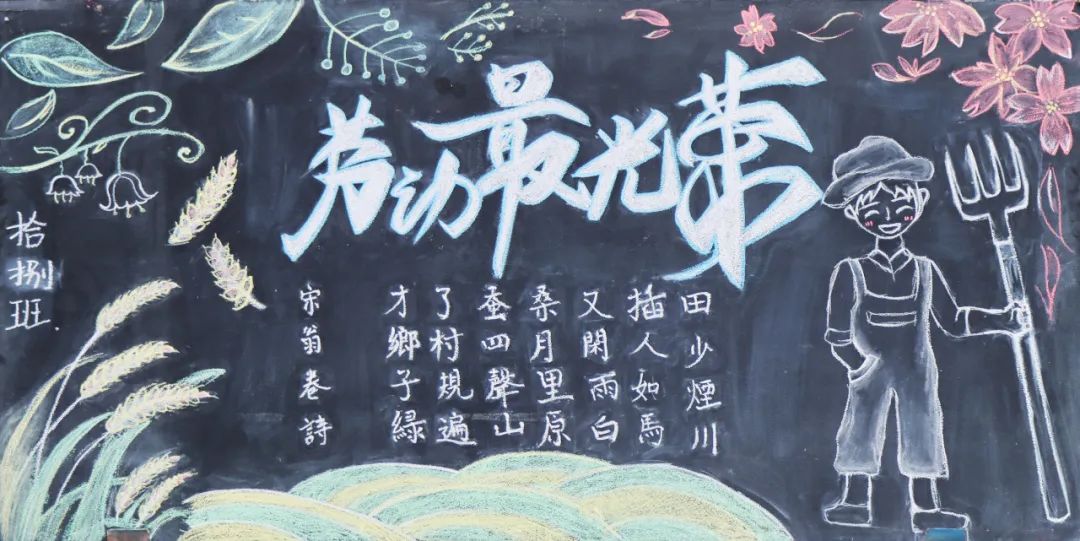 劳动最光荣
拾捌班.
宋翁卷詩
才了蚕桑又插田
鄉村四月閑人少
子規聲里雨如煙
緑遍山原白馬川